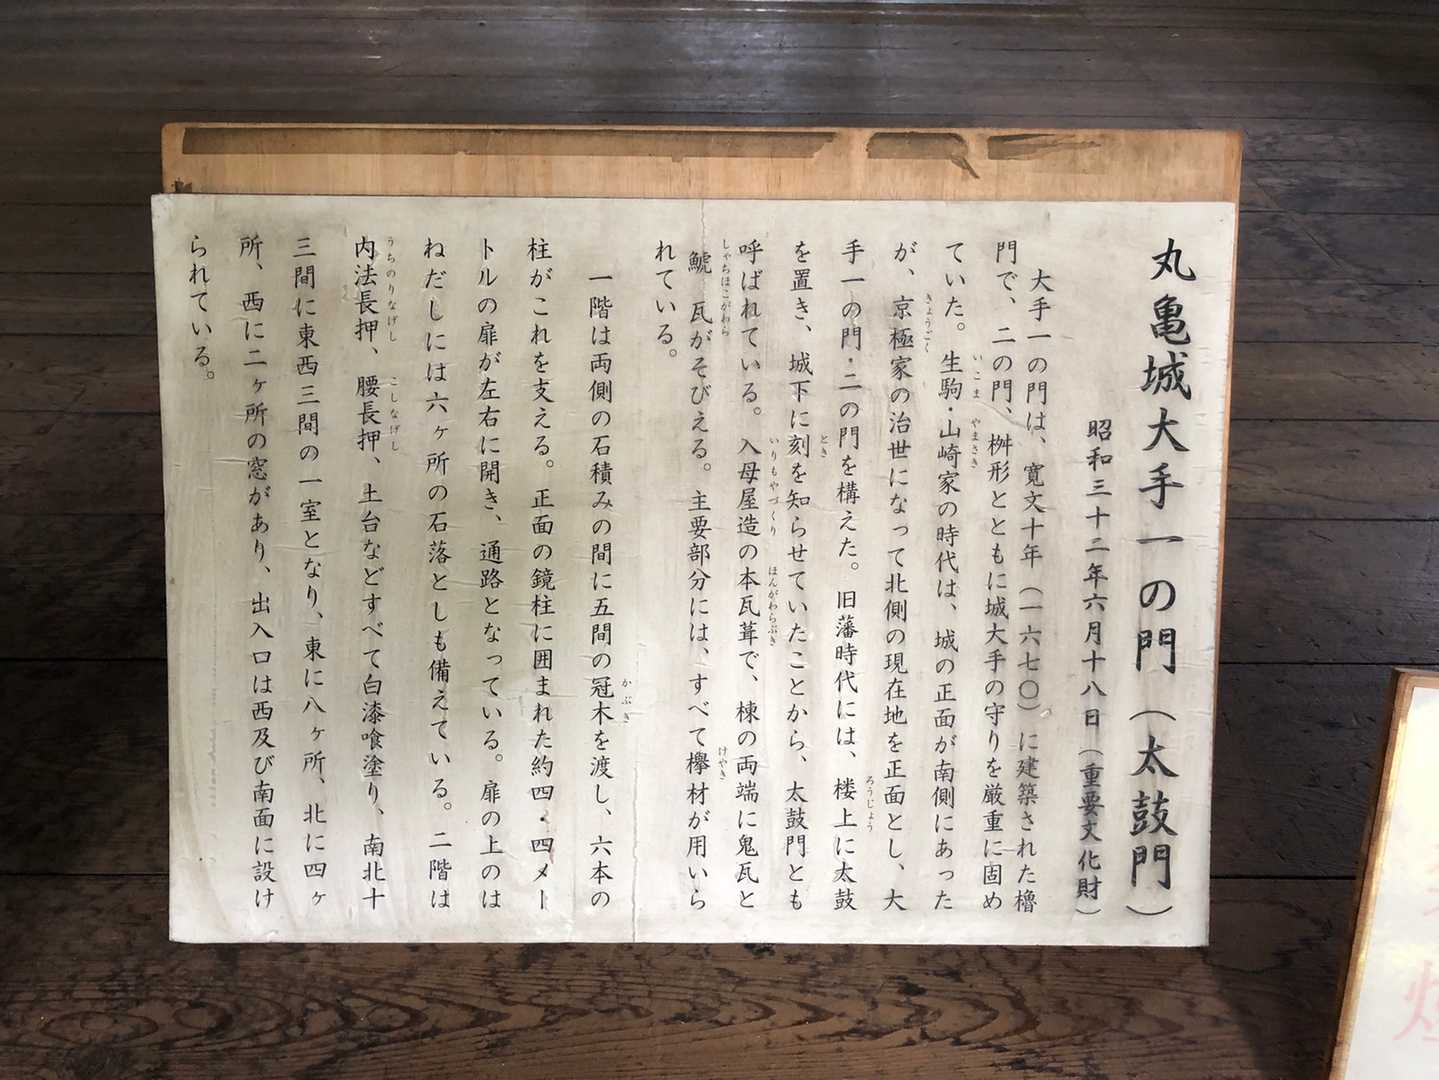 丸亀城大手一の門（太鼓門）
昭和三十二年六月十八日（重要文化財）
大手一の門は、寛文十年（一六七〇）に建築された櫓
門で、二の門、桝形とともに城大手の守りを厳重に固め
ていた。生駒・山崎家の時代は、城の正面が南側にあった
いこま やまさき
が、京極家の治世になって北側の現在地を正面とし、大
きょうごく
手一の門・二の門を構えた。旧藩時代には、楼上に太鼓
ろうじょう
を置き、城下に刻を知らせていたことから、太鼓門とも
とき
呼ばれている。入母屋造の本瓦葺で、棟の両端に鬼瓦と
いりもやづくり ほんがわらぶき
鯱瓦がそびえる。主要部分には、すべて欅材が用いら
しゃちほこがわら けやき
れている。
一階は両側の石積みの間に五間の冠木を渡し、六本の
かぶき
柱がこれを支える。正面の鏡柱に囲まれた約四・四メー
トルの扉が左右に開き、通路となっている。扉の上のは
ねだしには六ヶ所の石落としも備えている。二階は
内法長押、腰長押、土台などすべて白漆喰塗り、南北十
うちのりなげし こしなげし
三間に東西三間の一室となり、東に八ヶ所、北に四ヶ
所、西に二ヶ所の窓があり、出入口は西及び南面に設け
られている。